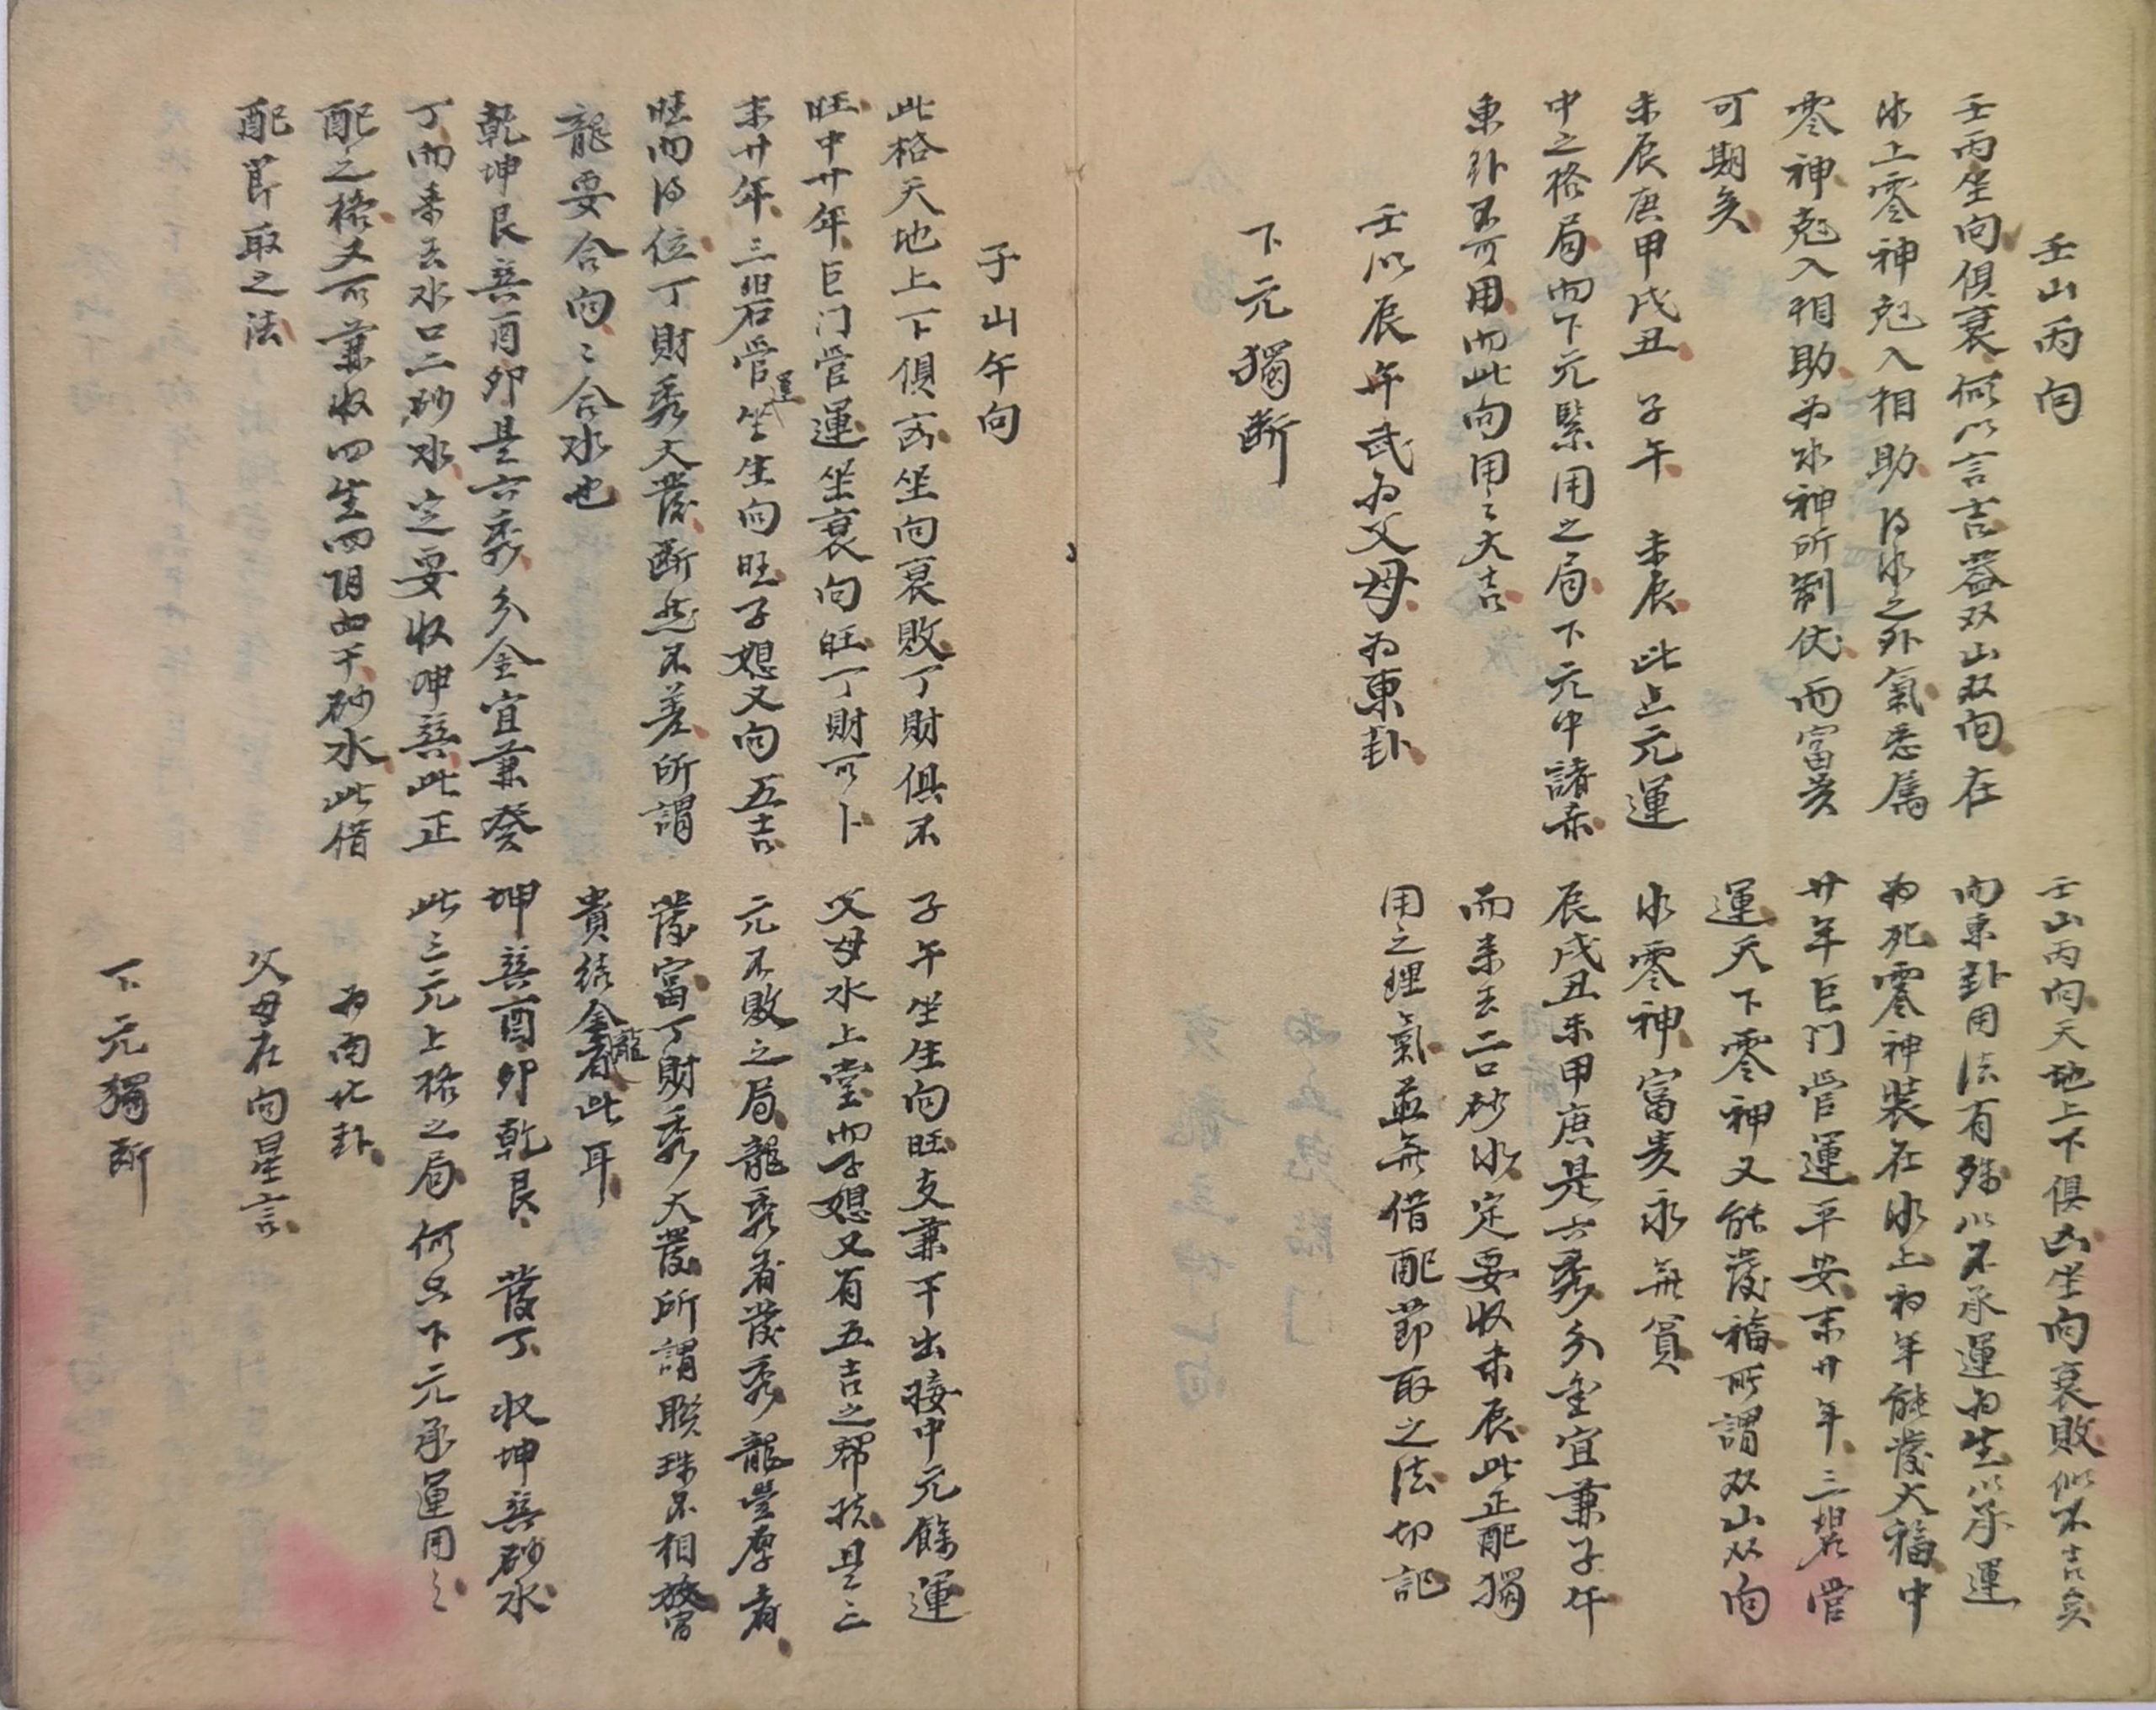 壬山丙向
壬丙坐向俱衰何以言吉蓋双山双向在
水上零神尅入相助得水之外氣悉属
零神尅入相助为水神所制伏而富貴
可期矣
未辰庚甲戌丑 子午 未辰 此上元運
中之格局而下元緊用之局下元中諸
東卦不可用而此向用之大吉
壬以辰午 为父母为東卦
下元獨断
壬山丙向天地上下俱凶坐向衰敗似不吉矣
向東卦用法有殊以不承運为生以承運
为死零神装在水上初年能發大福中
廿年巨門管運平安末廿年三碧管
運天下零神又能發福所謂双山双向
水零神富貴永無貧
辰戌丑未甲庚是六秀分金宜兼子午
而来去二口砂水定要收未辰此正配獨
用之理氣並無借配節取之法切記
子山午向
此格天地上下俱 坐向衰敗丁財俱不
旺中廿年巨门管運坐衰向旺丁財可卜
末廿年三碧管運坐生向旺子媳又向五吉
旺而得位丁財秀大發断然不差所謂
龍要合向〻合水也
乾坤艮巽酉卯是六秀分金宜兼癸
丁而来去水口二砂水定要收坤巽此正
配之格又可兼收四生四 由干砂水此借
配節取之法
子午坐生向旺支兼干出接中元餘運
父母水上堂而子媳又有五吉之 是三
元不敗之局龍秀者發秀龍豐厚者
發富丁財秀大發所謂联珠不相放富
貴結金龍者此耳
坤巽酉卯乾艮 發丁 收坤巽砂水
此三元上格之局 何只下元承運用之
为南北卦
父母在向星言
下元獨断